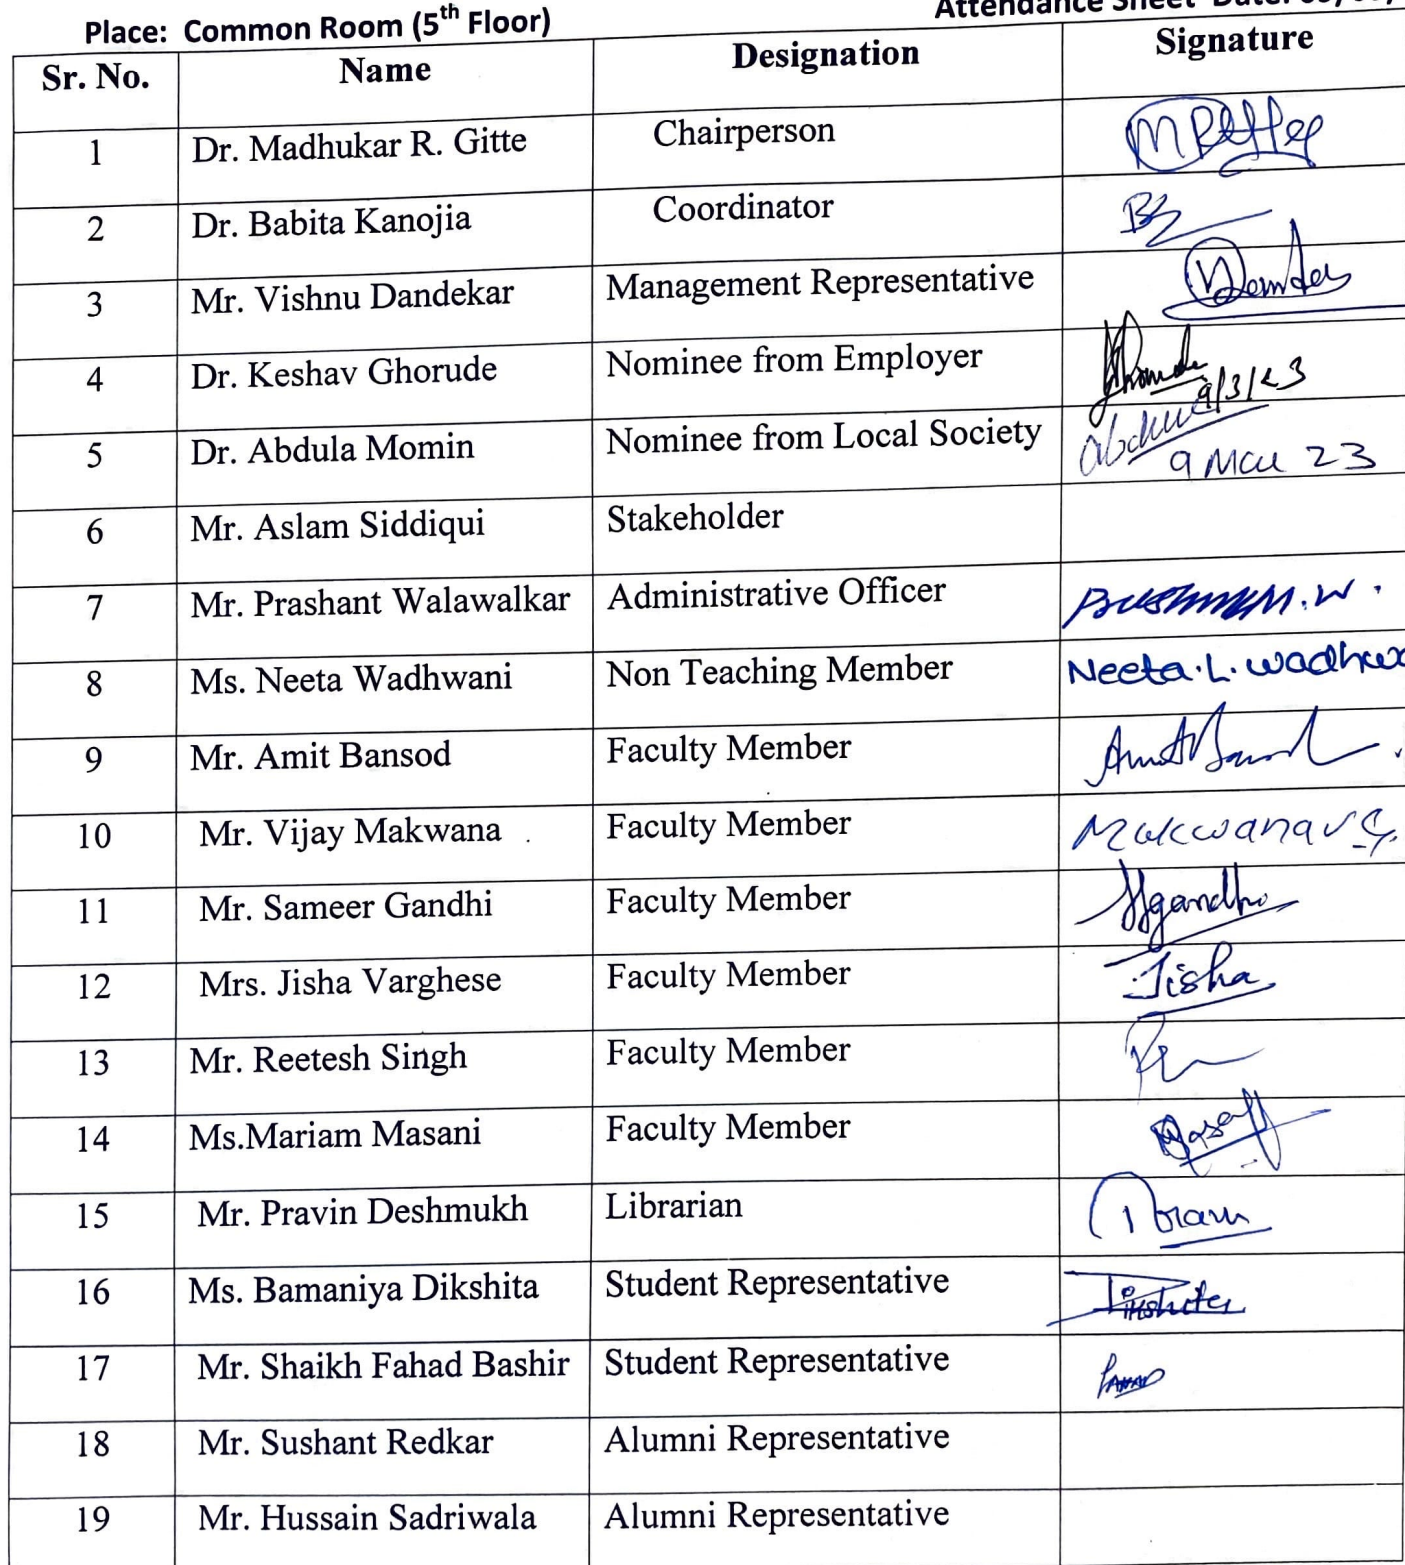 Place: Common Room (5th Floor) Attendance Sheet Date:
Sr. No. Name Designation Signature
1 Dr. Madhukar R. Gitte Chairperson
2 Dr. Babita Kanojia Coordinator
3 Mr. Vishnu Dandekar Management Representative
4 Dr. Keshav Ghorude Nominee from Employer 9/3/23
5 Dr. Abdula Momin Nominee from Local Society 9 Mar 23
6 Mr. Aslam Siddiqui Stakeholder
7 Mr. Prashant Walawalkar Administrative Officer
8 Ms. Neeta Wadhwani Non Teaching Member Neeta.L.Wadhwa
9 Mr. Amit Bansod Faculty Member
10 Mr. Vijay Makwana Faculty Member Makwana
11 Mr. Sameer Gandhi Faculty Member
12 Mrs. Jisha Varghese Faculty Member Jisha
13 Mr. Reetesh Singh Faculty Member
14 Ms.Mariam Masani Faculty Member
15 Mr. Pravin Deshmukh Librarian
16 Ms. Bamaniya Dikshita Student Representative
17 Mr. Shaikh Fahad Bashir Student Representative
18 Mr. Sushant Redkar Alumni Representative
19 Mr. Hussain Sadriwala Alumni Representative